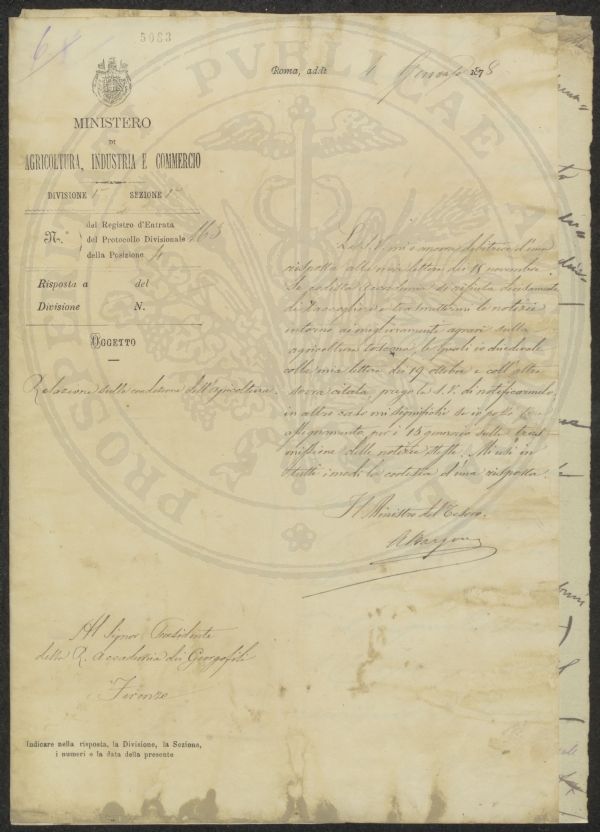 5083
Roma, addì 1 Gennaio 1878
MINISTERO
DI
AGRICOLTURA, INDUSTRIA E COMMERCIO
DIVISIONE 1ª SEZIONE 1ª
N.°
dal Registro d'Entrata
del Protocollo Divisionale 163
della Posizione 4
Risposta a del
Divisione N.
OGGETTO
Relazione sulle condizioni dell'agricoltura.
La S. V. mi è ancora debitrice d'una
risposta alla mia lettera dei 18 novembre.
Se codesta Accademia si rifiuta
di raccogliere e trasmettermi le notizie
intorno ai miglioramenti agrari sulla
agricoltura toscana, le quali io chiedevale
colla mia lettera dei 19 ottobre e coll'altra
sovra citata, prego la S. V. di notificarmelo,
in altro caso mi significhi se io posso fare
assegnamento, per i 15 gennaio sulla tras-
missione delle notizie stesse. Mi usi in
tutti i modi la cortesia d'una risposta.
Il Ministro del Tesoro.
Bargoni
Al Signor Presidente
della R. Accademia dei Georgofili
Firenze
Indicare nella risposta, la Divisione, la Sezione,
i numeri e la data della presente